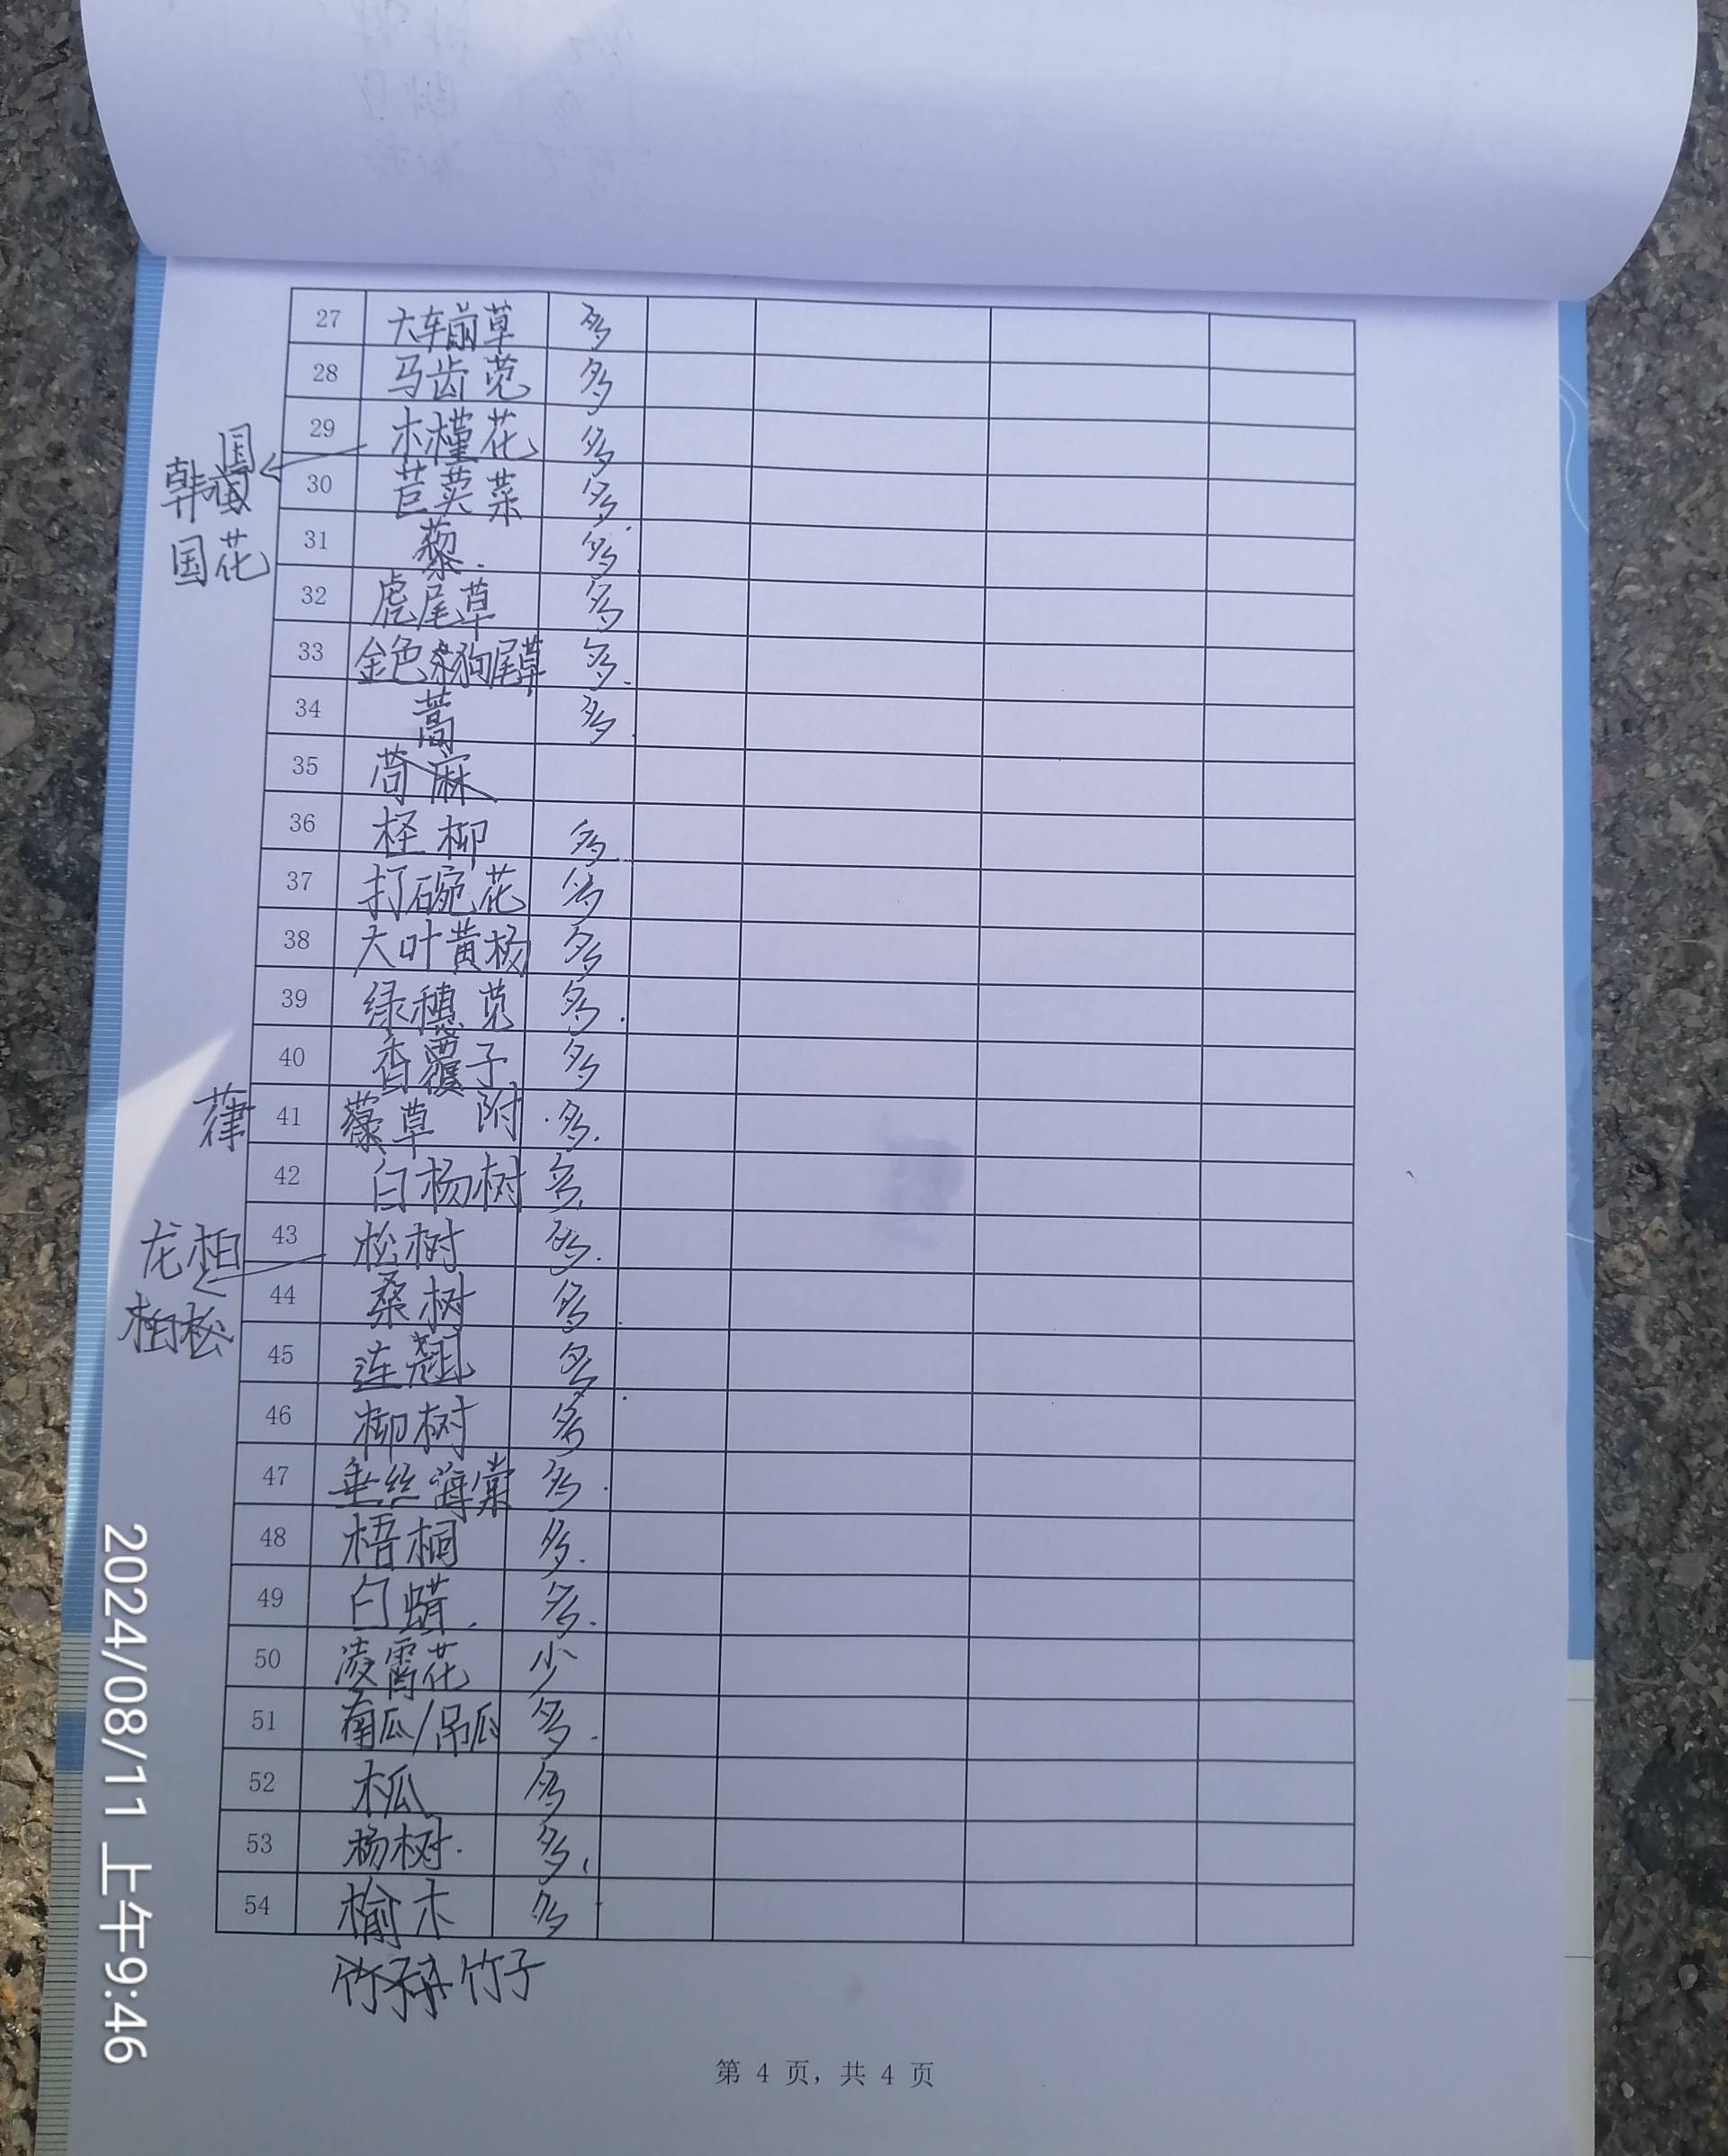 27 大车前草 多
28 马齿苋 多
29 木槿花 多
韩国
国花
30 苣荬菜 多
31 藜. 多
32 虎尾草 多
33 金色狗尾草 多.
34 蒿 多.
35 苘麻
36 柽柳 多.
37 打碗花 多
38 大叶黄杨 多
39 绿穗苋 多.
40 香附子 多
41 草 多.
葎
42 白杨树 多.
43 松树 多.
龙柏
柏松
44 桑树 多
45 连翘 多
46 柳树 多
47 垂丝海棠 多.
48 梧桐 多.
49 白蜡. 多.
50 凌霄花 少
51 南瓜/吊瓜 多.
52 木瓜 多
53 杨树. 多.
54 榆木 多
竹子
第 4 页，共 4 页
2024/08/11 上午9:46